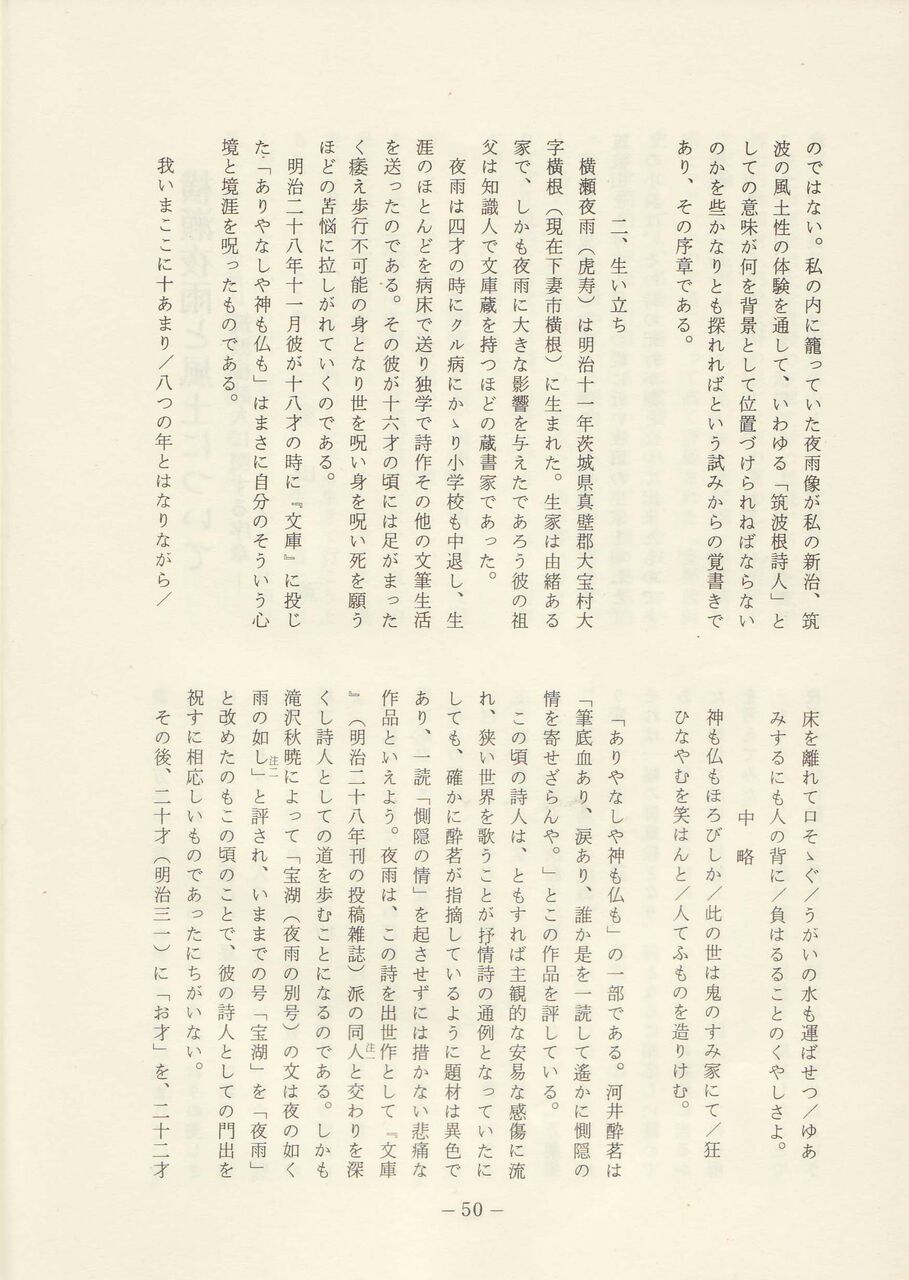 のではない。私の内に籠っていた夜雨像が私の新治、筑
波の風土性の体験を通して、いわゆる「筑波根詩人」と
しての意味が何を背景として位置づけられねばならない
のかを些かなりとも探れればという試みからの覚書きで
あり、その序章である。
二、生い立ち
横瀬夜雨（虎寿）は明治十一年茨城県真壁郡大宝村大
字横根（現在下妻市横根）に生まれた。生家は由緒ある
家で、しかも夜雨に大きな影響を与えたであろう彼の祖
父は知識人で文庫蔵を持つほどの蔵書家であった。
夜雨は四才の時にクル病にかゝり小学校も中退し、生
涯のほとんどを病床で送り独学で詩作その他の文筆生活
を送ったのである。その彼が十六才の頃には足がまった
く痿え歩行不可能の身となり世を呪い身を呪い死を願う
ほどの苦悩に拉しがれていくのである。
明治二十八年十一月彼が十八才の時に『文庫』に投じ
た「ありやなしや神も仏も」はまさに自分のそういう心
境と境涯を呪ったものである。
我いまここに十あまり／八つの年とはなりながら／
床を離れて口そゝぐ／うがいの水も運ばせつ／ゆあ
みするにも人の背に／負はるることのくやしさよ。
中略
神も仏もほろびしか／此の世は鬼のすみ家にて／狂
ひなやむを笑はんと／人てふものを造りけむ。
「ありやなしや神も仏も」の一部である。河井酔茗は
「筆底血あり、涙あり、誰か是を一読して遙かに惻隠の
情を寄せざらんや。」とこの作品を評している。
この頃の詩人は、ともすれば主観的な安易な感傷に流
れ、狭い世界を歌うことが抒情詩の通例となっていたに
しても、確かに酔茗が指摘しているように題材は異色で
あり、一読「惻隠の情」を起させずには措かない悲痛な
作品といえよう。夜雨は、この詩を出世作として『文庫
』（明治二十八年刊の投稿雑誌）派の同人注一と交わりを深
くし詩人としての道を歩むことになるのである。しかも
滝沢秋暁によって「宝湖（夜雨の別号）の文は夜の如く
雨の如し」注二と評され、いままでの号「宝湖」を「夜雨」
と改めたのもこの頃のことで、彼の詩人としての門出を
祝すに相応しいものであったにちがいない。
その後、二十才（明治三一）に「お才」を、二十二才
－50－